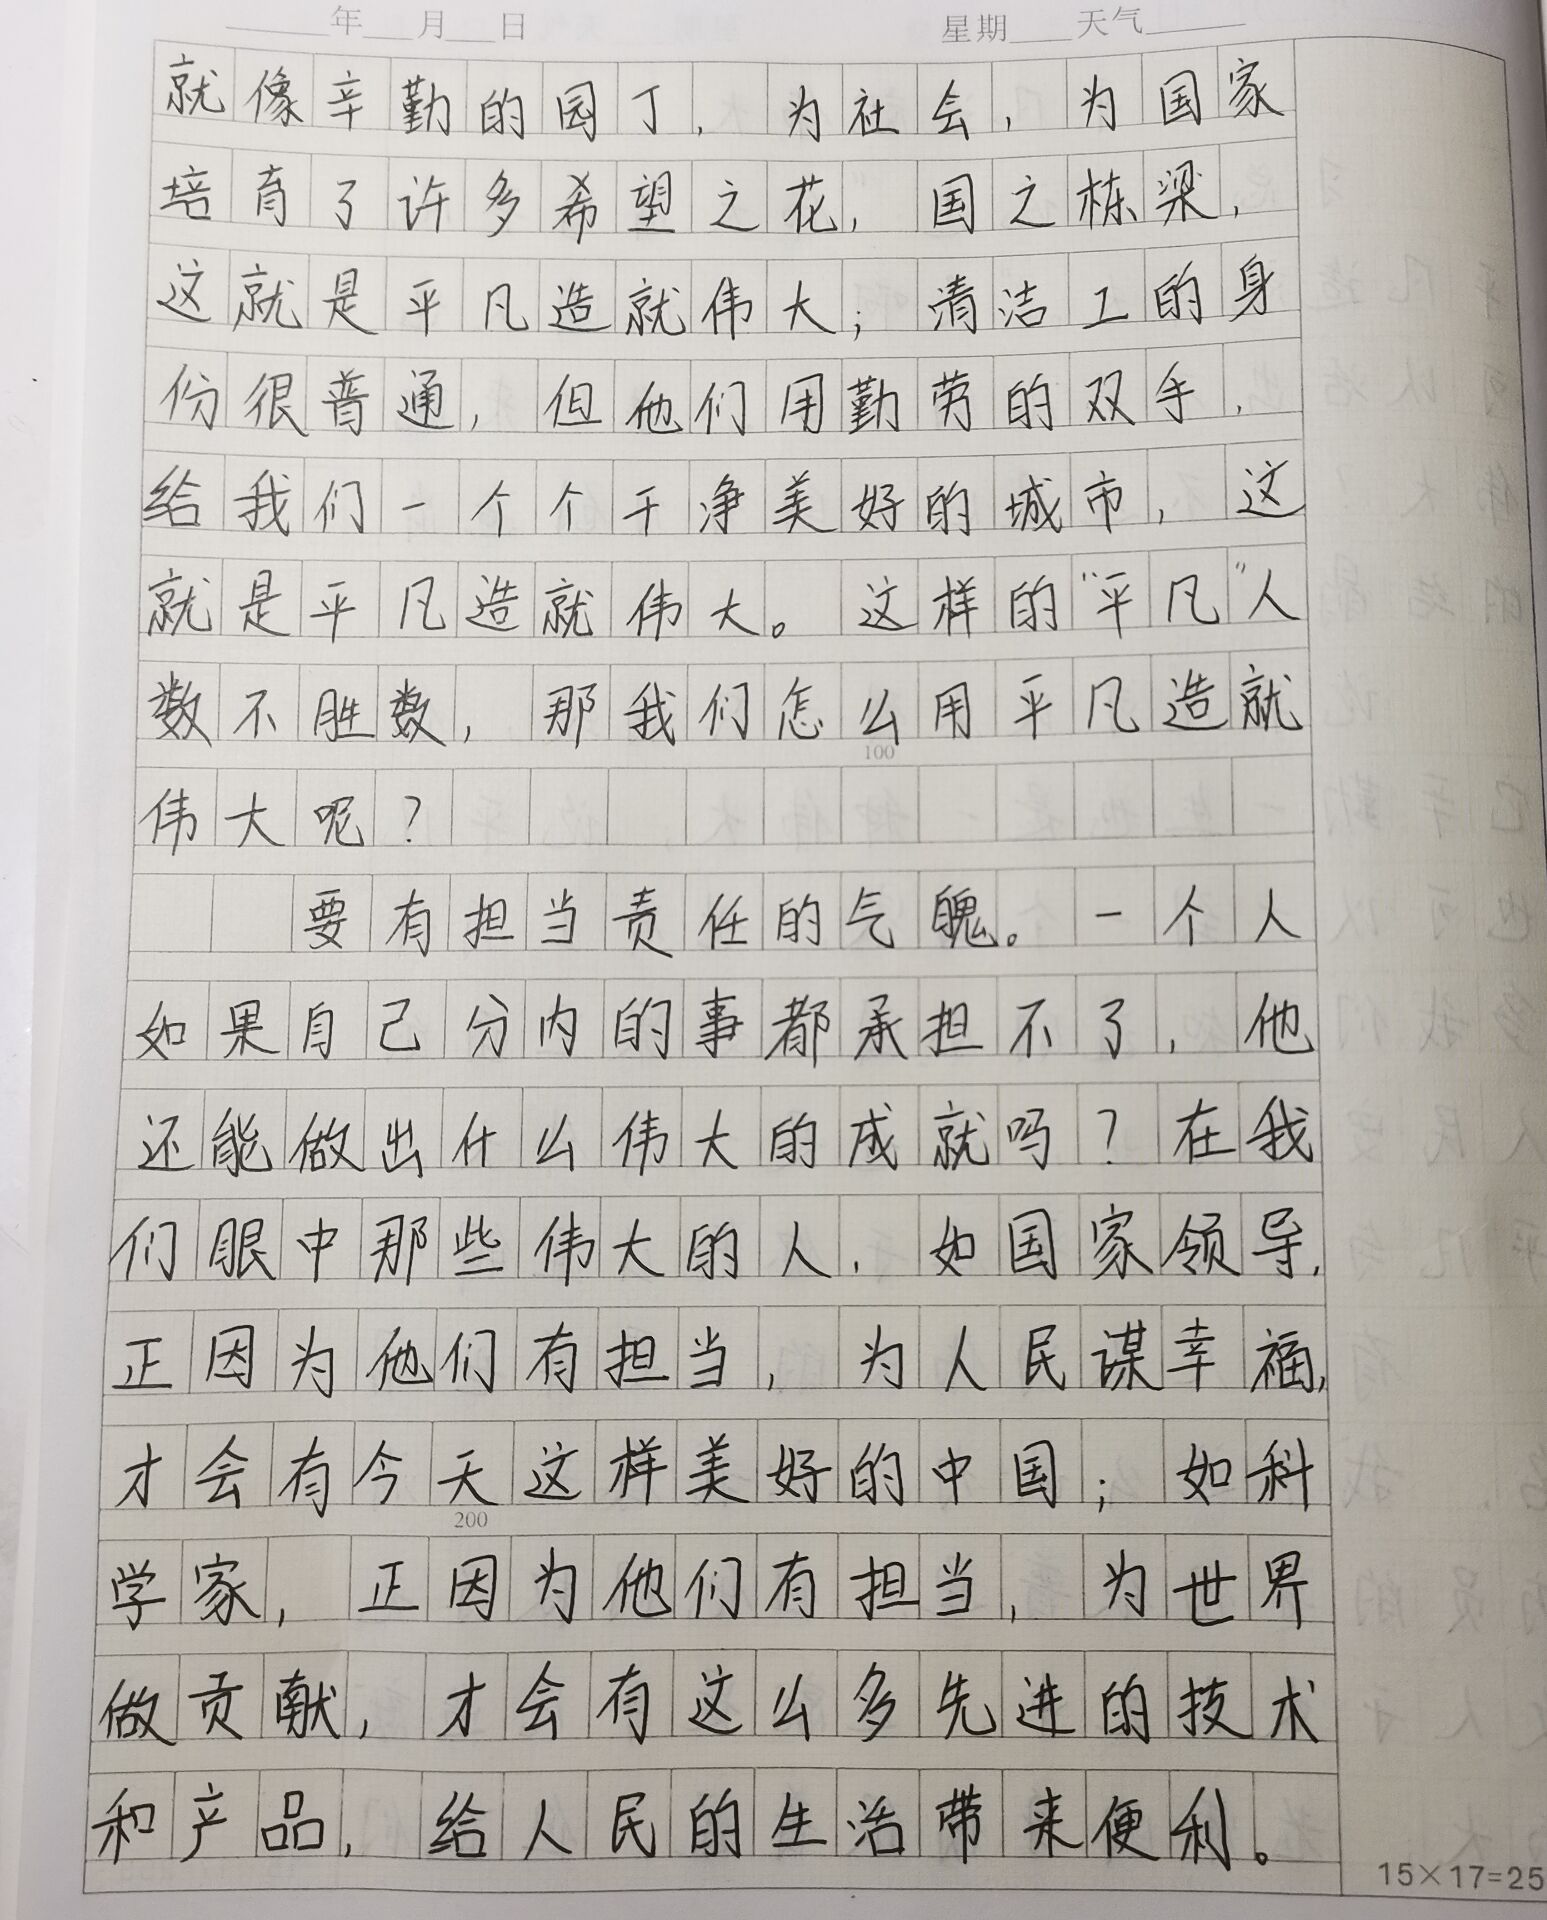 年 月 日 星期 天气
就像辛勤的园丁，为社会，为国家
培育了许多希望之花，国之栋梁，
这就是平凡造就伟大；清洁工的身
份很普通，但他们用勤劳的双手，
给我们一个个干净美好的城市，这
就是平凡造就伟大。这样的“平凡”人
数不胜数，那我们怎么用平凡造就
100
伟大呢？
要有担当责任的气魄。一个人
如果自己分内的事都承担不了，他
还能做出什么伟大的成就吗？在我
们眼中那些伟大的人，如国家领导，
正因为他们有担当，为人民谋幸福，
才会有今天这样美好的中国；如科
200
学家，正因为他们有担当，为世界
做贡献，才会有这么多先进的技术
和产品，给人民的生活带来便利。
15×17=25